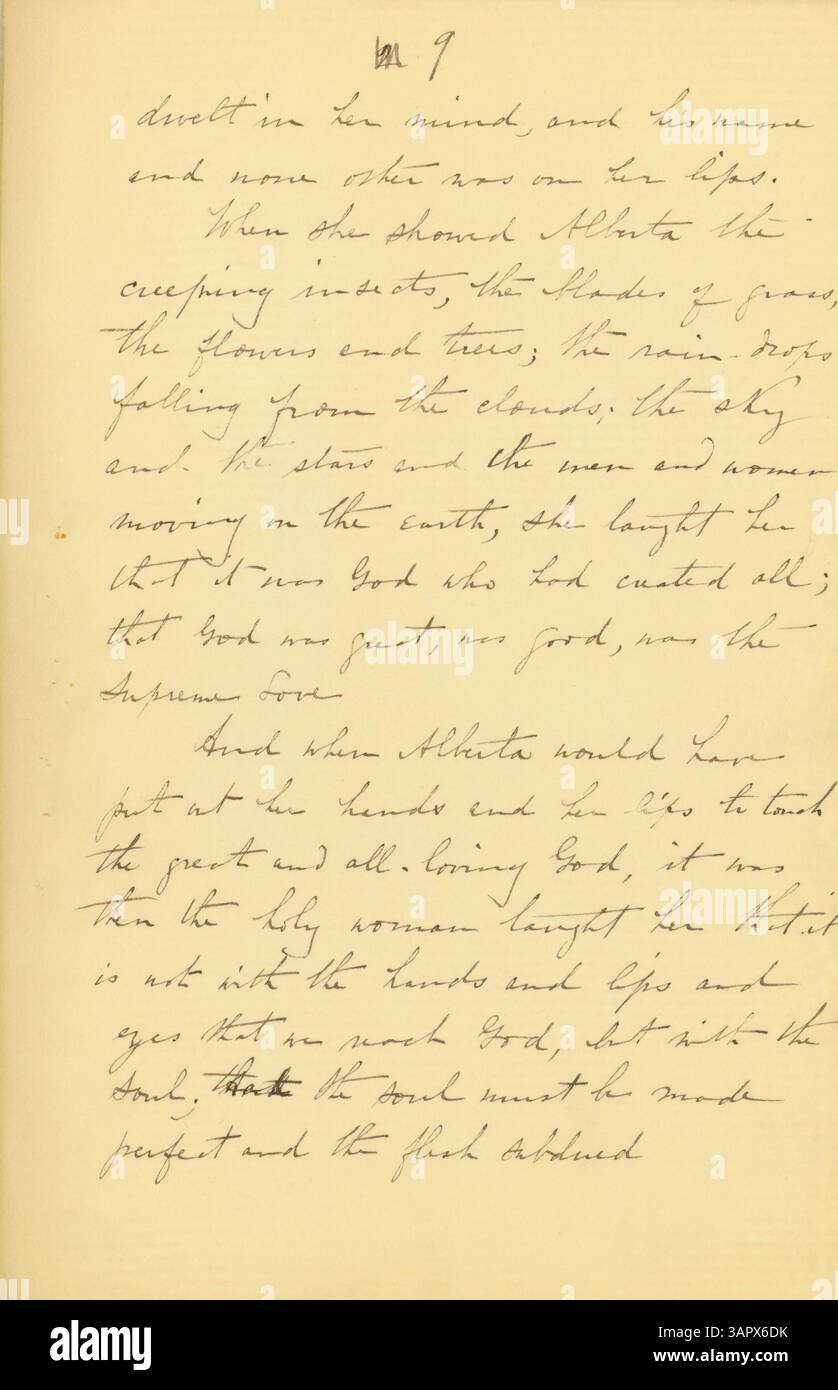 9
dwelt in her mind, and his name
and none other was on her lips.
When she showed Alberta the
creeping insects, the blades of grass,
the flowers and trees; the rain-drops
falling from the clouds; the sky
and the stars and the men and women
moving on the earth, she taught her
that it was God who had created all;
that God was great, was good, was the
Supreme Love
And when Alberta would have
put out her hands and her lips to touch
the great and all-loving God, it was
then the holy woman taught her that it
is not with the hands and lips and
eyes that we reach God, but with the
soul; that the soul must be made
perfect and the flesh subdued
alamy
Image ID: 3APX6DK
www.alamy.com